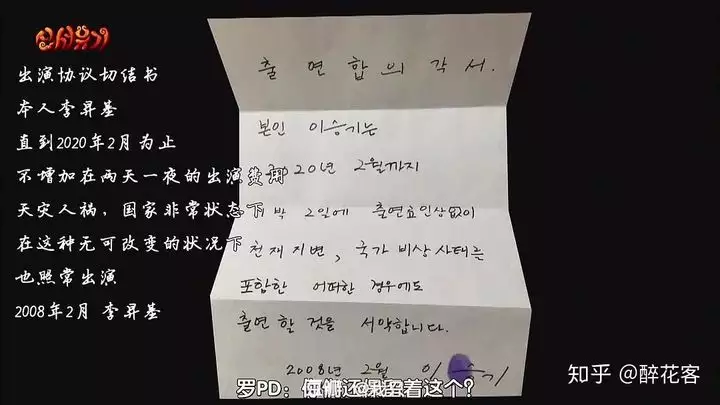 신서유기
出演协议切结书
本人李昇基
直到2020年2月为止
不增加在两天一夜的出演费用
天灾人祸，国家非常状态下
在这种无可改变的状况下
也照常出演
2008年2月 李昇基
출연합의각서.
본인 이승기는
20년 2월까지
박 2일에 출연료인상없이
천재지변, 국가 비상사태를
포함한 어떠한 경우에도
출연할것을 서약합니다.
2008년 2월 이승기
罗PD：你们还保留着这个？
知乎 @醉花客